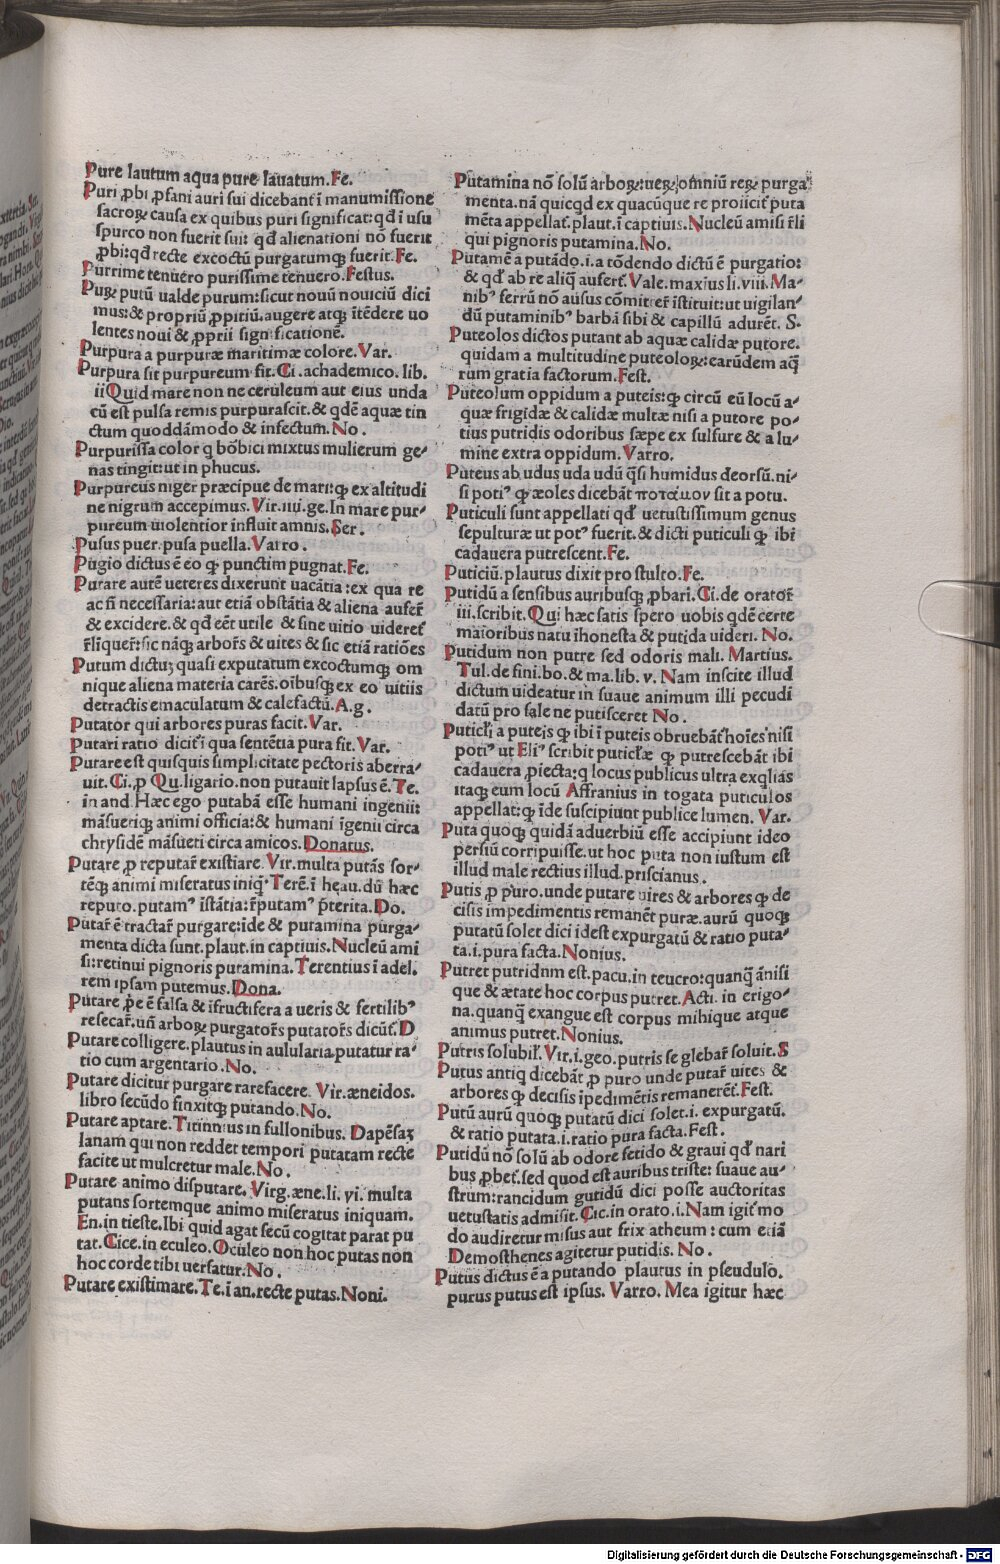 Pure lautum aqua pure lauatum. Fe.
Puri ꝓbi ꝓfani auri sui dicebant̄ i manumissione
sacroꝝ causa ex quibus puri significat: qđ ī usu
spurco non fuerit sui: qđ alienationi nō fuerit
ꝓbi: qđ recte excoctū purgatumqꝫ fuerit. Fe.
Purrime tenuero purissime tenuero. Festus.
Puꝝ putū ualde purum: sicut nouū nouiciū dici
mus: & propriū ꝓpitiū. augere atqꝫ itēdere uo
lentes noui & ꝓprii significationē.
Purpura a purpuræ maritimæ colore. Var.
Purpura sit purpureum fit. Ci. achademico. lib.
ii Quid mare non ne ceruleum aut eius unda
cū est pulsa remis purpurascit. & qdē aquæ tin
ctum quoddāmodo & infectum. No.
Purpurissa color q bōbici mixtus mulierum ge⸗
nas tingit: ut in phucus.
Purpureus niger præcipue de mari: qꝫ ex altitudi
ne nigrum accepimus. Vir. iiii. ge. In mare pur⸗
pureum uiolentior influit amnis. Ser.
Pusus puer. pusa puella. Varro.
Pugio dictus ē eo qꝫ punctim pugnat. Fe.
Purare autē ueteres dixerunt uacātia: ex qua re
ac n̄ necessaria: aut etiā obstātia & aliena aufer̄
& excidere. & qđ eēt utile & sine uitio uideret̄
r̄liquer̄: sic nāqꝫ arbor̄s & uites & sic etiā ratiōes
Putum dictuꝫ quasi exputatum excoctumqꝫ om
nique aliena materia carēs. oībusqꝫ ex eo uitiis
detractis emaculatum & calefactū. A. g.
Putator qui arbores puras facit. Var.
Putari ratio dicit̄ i qua sentētia pura fit. Var.
Putare est quisquis simplicitate pectoris aberra⸗
uit. Ci. ꝓ Qu. ligario. non putauit lapsus ē. Te.
in and. Hæc ego putabā esse humani ingenii:
māsuetiqꝫ animi officia: & humani īgenii circa
chrysidē māsueti circa amicos. Donatus.
Putare ꝓ reputar̄ existiare. Vir. multa putās sor⸗
tēqꝫ animi miseratus iniqꝫ. Terē. ī heau. dū hæc
reputo. putamꝰ īstātia: r̄putamꝰ p̄terita. Do.
Putar̄ ē tractar̄ purgare: ide & putamina purga⸗
menta dicta sunt. plaut. in captiuis. Nucleū ami
si: retinui pignoris putamina. Terentius ī adel.
rem ipsam putemus. Dona.
Putare p̄e ē falsa & ifructifera a ueris & fertilibꝰ
resecar̄. uñ arboꝝ purgator̄s putator̄s dicūt̄. D
Putare colligere. plautus in aulularia. putatur ra⸗
tio cum argentario. No.
Putare dicitur purgare rarefacere. Vir. æneidos.
libro secūdo finxitqꝫ putando. No.
Putare aptare. Titinnius in fullonibus. Da pēsaꝫ
lanam qui non reddet tempori putatam recte
facite ut mulcretur male. No.
Putare animo disputare. Virg. æne. li. yi. multa
putans sortemque animo miseratus iniquam.
En. in tieste. Ibi quid agat secū cogitat parat pu
tat. Cice. in eculeo. Oculeo non hoc putas non
hoc corde tibi uersatur. No.
Putare existimare. Te. ī an. recte putas. Noni.
Putamina nō solū arboꝝ: ueꝝ omniū reꝝ purga
menta. nā quicqđ ex quacūque re proiicit̄ puta
mēta appellat̄. plaut. ī captiuis. Nucleū amisi r̄li
qui pignoris putamina. No.
Putamē a putādo. i. a tōdendo dictū ē purgatio:
& qđ ab re aliq̄ aufert̄. Vale. maxius li. viii. Ma⸗
nibꝰ ferrū nō ausus cōmitter̄ īstituit: ut uigilan⸗
dū putaminibꝰ barbā sibi & capillū adurēt. S.
Puteolos dictos putant ab aquæ calidæ putore.
quidam a multitudine puteoloꝝ: earūdem aq̄
rum gratia factorum. Fest.
Puteolum oppidum a puteis: qꝫ circū eū locū a⸗
quæ frigidæ & calidæ multæ nisi a putore po⸗
tius putridis odoribus sæpe ex sulfure & a lu⸗
mine extra oppidum. Varro.
Puteus ab udus uda udū q̄si humidus deorsū. ni⸗
si potiꝰ qꝫ æoles dicebāt ποτάμον sit a potu.
Puticuli sunt appellati qđ uetustissimum genus
sepulturæ ut potꝰ fuerit. & dicti puticuli qꝫ ibi
cadauera putrescent. Fe.
Puticiū. plautus dixit pro stulto. Fe.
Putidū a sensibus auribusqꝫ ꝓbari. Ci. de orator̄
iii. scribit. Qui hæc satis spero uobis qdē certe
maioribus natu ihonesta & putida uideri. No.
Putidum non putre sed odoris mali. Martius.
Tul. de fini. bo. & ma. lib. v. Nam inscite illud
dictum uideatur in suaue animum illi pecudi
datū pro sale ne putisceret No.
Puticl̄i a puteis qꝫ ibi ī puteis obruebāt̄ hoīes nisi
potiꝰ ut Eliꝰ scribit puticl̄æ qꝫ putrescebāt ibi
cadauera ꝓiecta: q locus publicus ultra exqlias
itaqꝫ eum locū Affranius in togata puticulos
appellat: qꝫ īde suscipiunt publice lumen. Var.
Puta quoqꝫ quidā aduerbiū esse accipiunt ideo
persiū corripuisse. ut hoc puta non iustum est
illud male rectius illud. priscianus.
Putis ꝓ puro. unde putare uires & arbores qꝫ de
cisis impedimentis remanēt puræ. aurū quoqꝫ
putatū solet dici idest expurgatū & ratio puta⸗
ta. i. pura facta. Nonius.
Putret putridnm est. pacu. in teucro: quanq̄ ānisi
que & ætate hoc corpus putret. Acti. in erigo⸗
na. quanq̄ exangue est corpus mihique atque
animus putret. Nonius.
Putris solubil̄. Vir. i. geo. putris se glebar̄ soluit. S
Putus antiq dicebāt ꝓ puro unde putar̄ uites &
arbores qꝫ decisis īpedimētis remanerēt. Fest.
Putū aurū quoqꝫ putatū dici solet. i. expurgatū.
& ratio putata. i. ratio pura facta. Fest.
Putidū nō solū ab odore fetido & graui qđ nari
bus ꝓbet̄. sed quod est auribus triste: suaue au⸗
strum: rancidum gutidū dici posse auctoritas
uetustatis admisit. Cic. in orato. i. Nam igit̄ mo
do audiretur misus aut frix atheum: cum etiā
Demosthenes agitetur putidis. No.
Putus dictus ē a putando plautus in pseudulo.
purus putus est ipsus. Varro. Mea igitur hæc
Digitalisierung gefördert durch die Deutsche Forschungsgemeinschaft - DFG